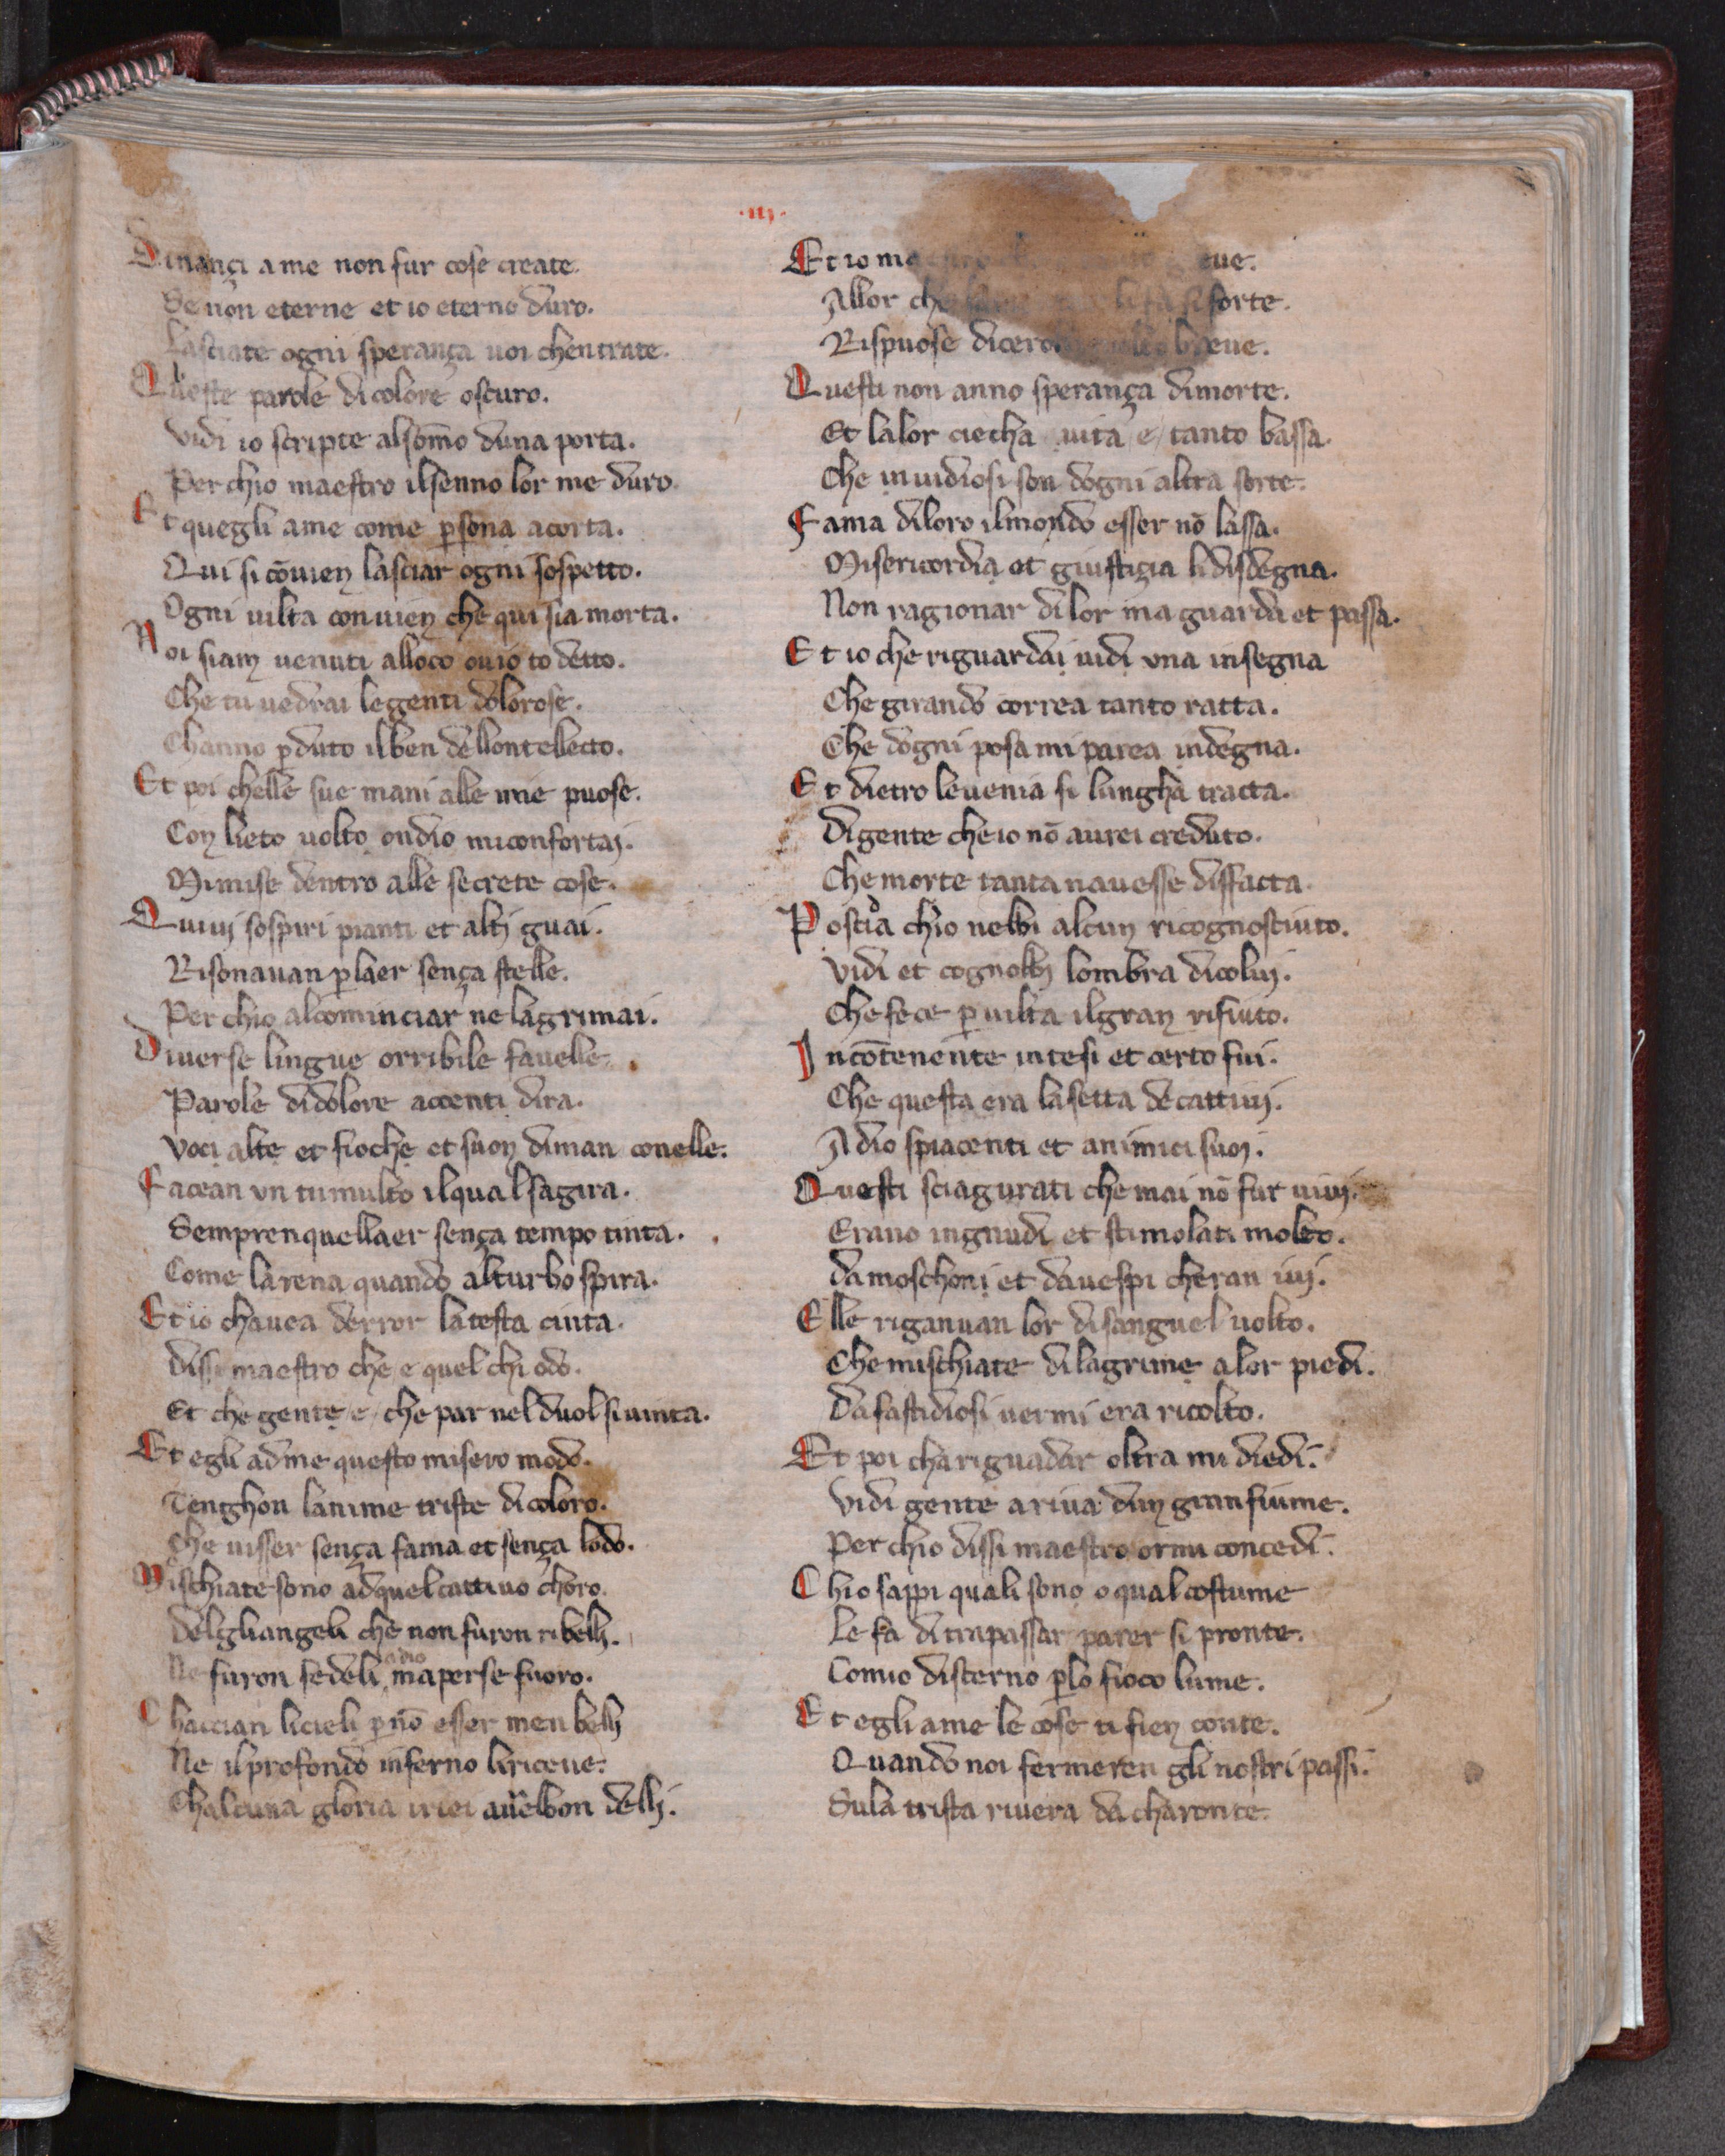 .iij.
Dinançi ame non fur cose create.
Se non eterne et io eterno duro.
Lasciate ogni sperança uoi chentrate.
Queste parole di colore oscuro.
Vidi io scripte alsōmo duna porta.
Per chio maestro ilsenno lor me duro.
Et quegli ame come ꝑsona acorta.
Qui si cōuien lasciar ogni sospetto.
Ogni uilta conuien che qui sia morta.
Noi siam uenuti alloco ouio to detto.
Che tu uedrai legenti dolorose.
Channo ꝑduto ilben dellontellecto.
Et poi chelle sue mani alle mie puose.
Con lieto uolto ondio miconfortaj.
Mimise dentro alle secrete cose.
Quiuj sospiri pianti et altj guai.
Risonauan ꝑlaer sença stelle.
Per chio alcominciar ne lagrimai.
Diuerse lingue orribile fauelle.
Parole didolore accenti dira.
Voci alte et fioche et suon diman conelle.
Facean vn tumulto ilqual sagira.
Semprenquellaer sença tempo tinta.
Come larena quando alturbo spira.
Et io chauea derror latesta cinta.
Dissi maestro che e quel chi odo.
Et che gente e che par nel duol si uinta.
Et egli adme questo misero modo.
Tenghon lanime triste dicoloro.
Che uisser sença fama et sença lodo.
Mischiate sono adquel cattiuo choro.
Delgliangeli che non furon ribellj.
Ne furon fedeli adio ma perse fuoro.
Chaccian licieli ꝑ nō esser men bellj
Ne ilprofondo inferno liriceue.
Chalcuna gloria iriei aurebbon dellj.
Et io ma eue.
Allor che si forte.
Rispuose dicero breue.
Questi non anno sperança dimorte.
Et lalor ciecha uita e tanto bassa.
Che inuidiosi son dogni altra sorte.
Fama diloro ilmondo esser nō lassa.
Misericordia et giustiçia lidisdegna.
Non ragionar dilor ma guarda et passa.
Et io che riguardai uidi vna insegna
Che girando correa tanto ratta.
Che dogni posa mi parea indegna.
Et dietro leuenia si lungha tracta.
Digente che io nō aurei creduto.
Che morte tanta nauesse disfacta.
Poscia chio nebbi alcun ricognosciuto.
Vidi et cognobbi lombra dicoluj.
Che fece ꝑ uilta ilgran rifiuto.
Incōtenente intesi et certo fui.
Che questa era lasetta de cattiuj.
A dio spiacenti et animici suoj.
Questi sciagurati che mai nō fur uiuj.
Erano ingnudi et stimolati molto.
Da moschoni et dauespi cheran iuj.
Elle rigauuan lor disanguel uolto.
Che mischiate dilagrime alor piedi.
Dafastidiosi uermi era ricolto.
Et poi chariguadar oltra mi diedi.
Vidi gente ariua dun gran fiume.
Per chio dissi maestro ormi concedi.
Chio sappi quali sono o qual costume
Le fa di trapassar parer si pronte.
Comio discerno ꝑlo fioco lume.
Et egli ame le cose ti fien conte.
Quando noi fermeren gli nostri passi.
Sula trista riuera da charonte.